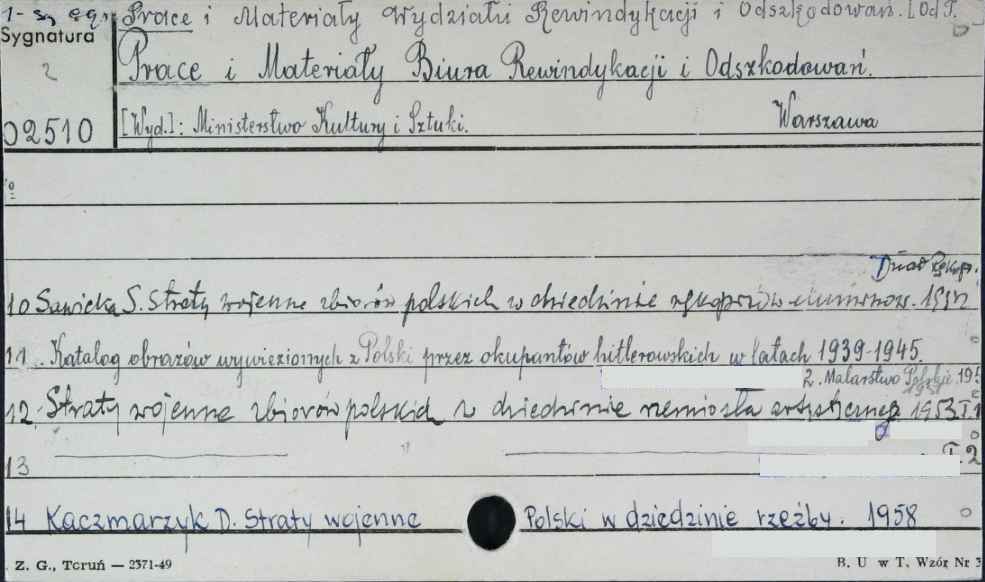 Prace i Materiały Wydziału Rewindykacji i Odszkodowań. [Od T.
Sygnatura
2
Prace i Materiały Biura Rewindykacji i Odszkodowań.
02510
[Wyd.]: Ministerstwo Kultury i Sztuki. Warszawa
Dział Rękop.
10 Sawicka S. Straty wojenne zbiorów polskich w dziedzinie rękopisów iluminow. 1952
11. Katalog obrazów wywiezionych z Polski przez okupantów hitlerowskich w latach 1939-1945.
2. Malarstwo 195
12. Straty wojenne zbiorów polskich w dziedzinie rzemiosła artystyczneg 1953 T.1
13 T.2
14 Kaczmarzyk D. Straty wojenne Polski w dziedzinie rzeźby. 1958
Z. G., Toruń — 2371-49 B. U w T. Wzór Nr 3